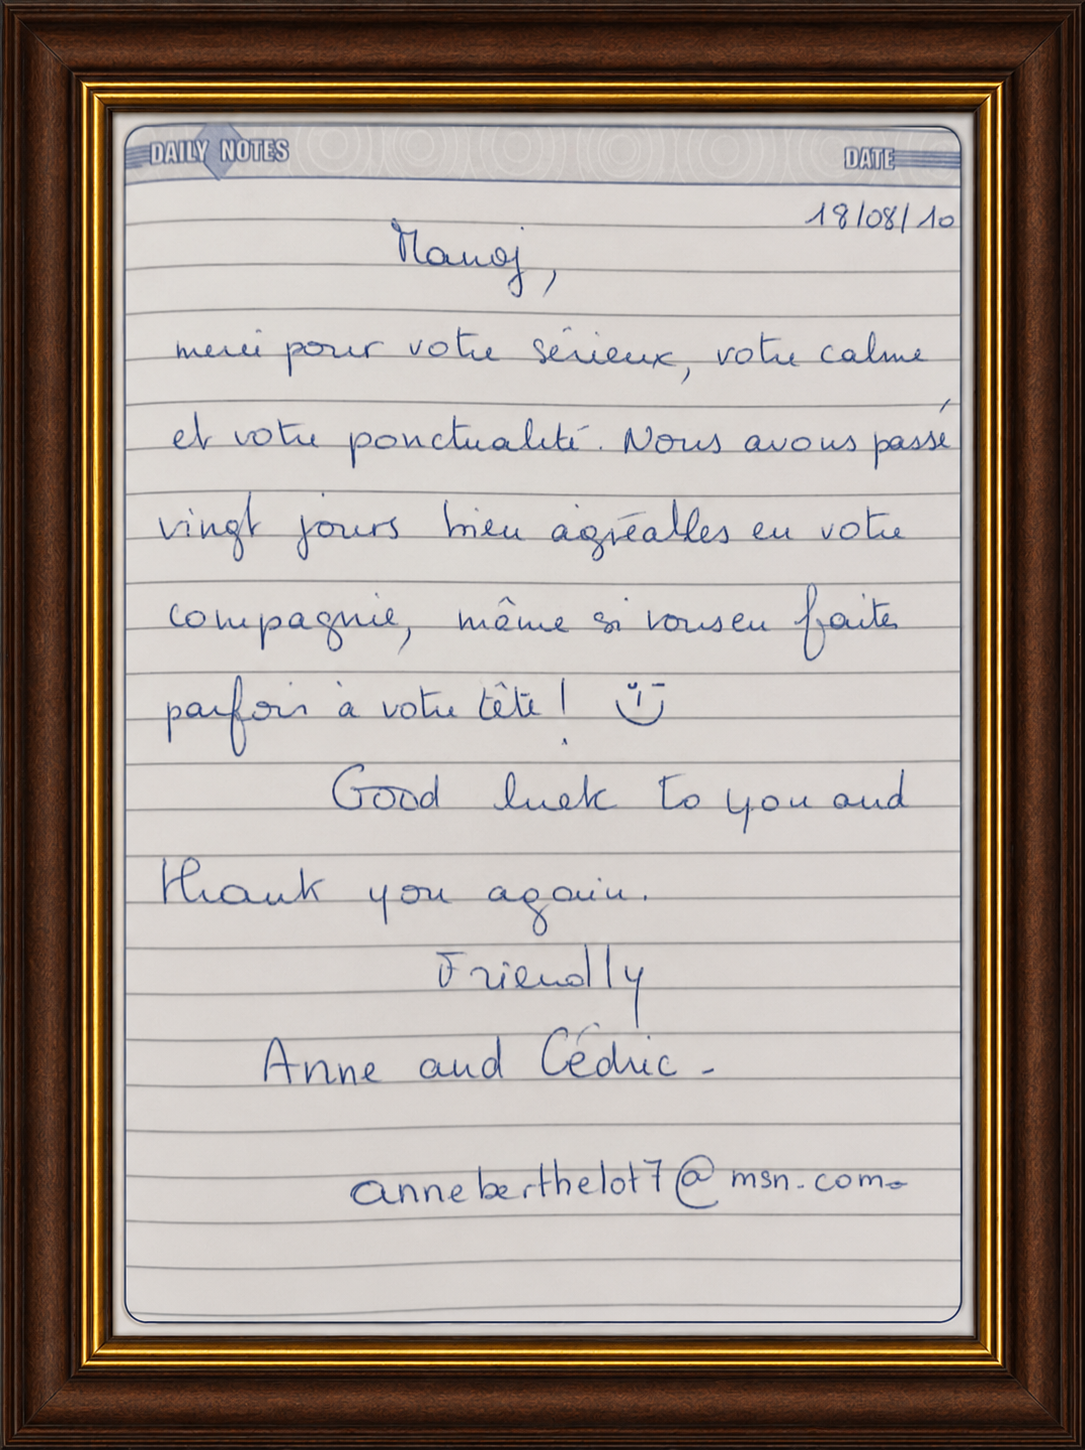 DAILY NOTES
DATE
18/08/10
Manoj,
merci pour votre sérieux, votre calme
et votre ponctualité. Nous avons passé
vingt jours bien agréables en votre
compagnie, même si vous en faites
parfois à votre tête !
Good luck to you and
thank you again.
Friendly
Anne and Cédric -
anneberthelot7@msn.com